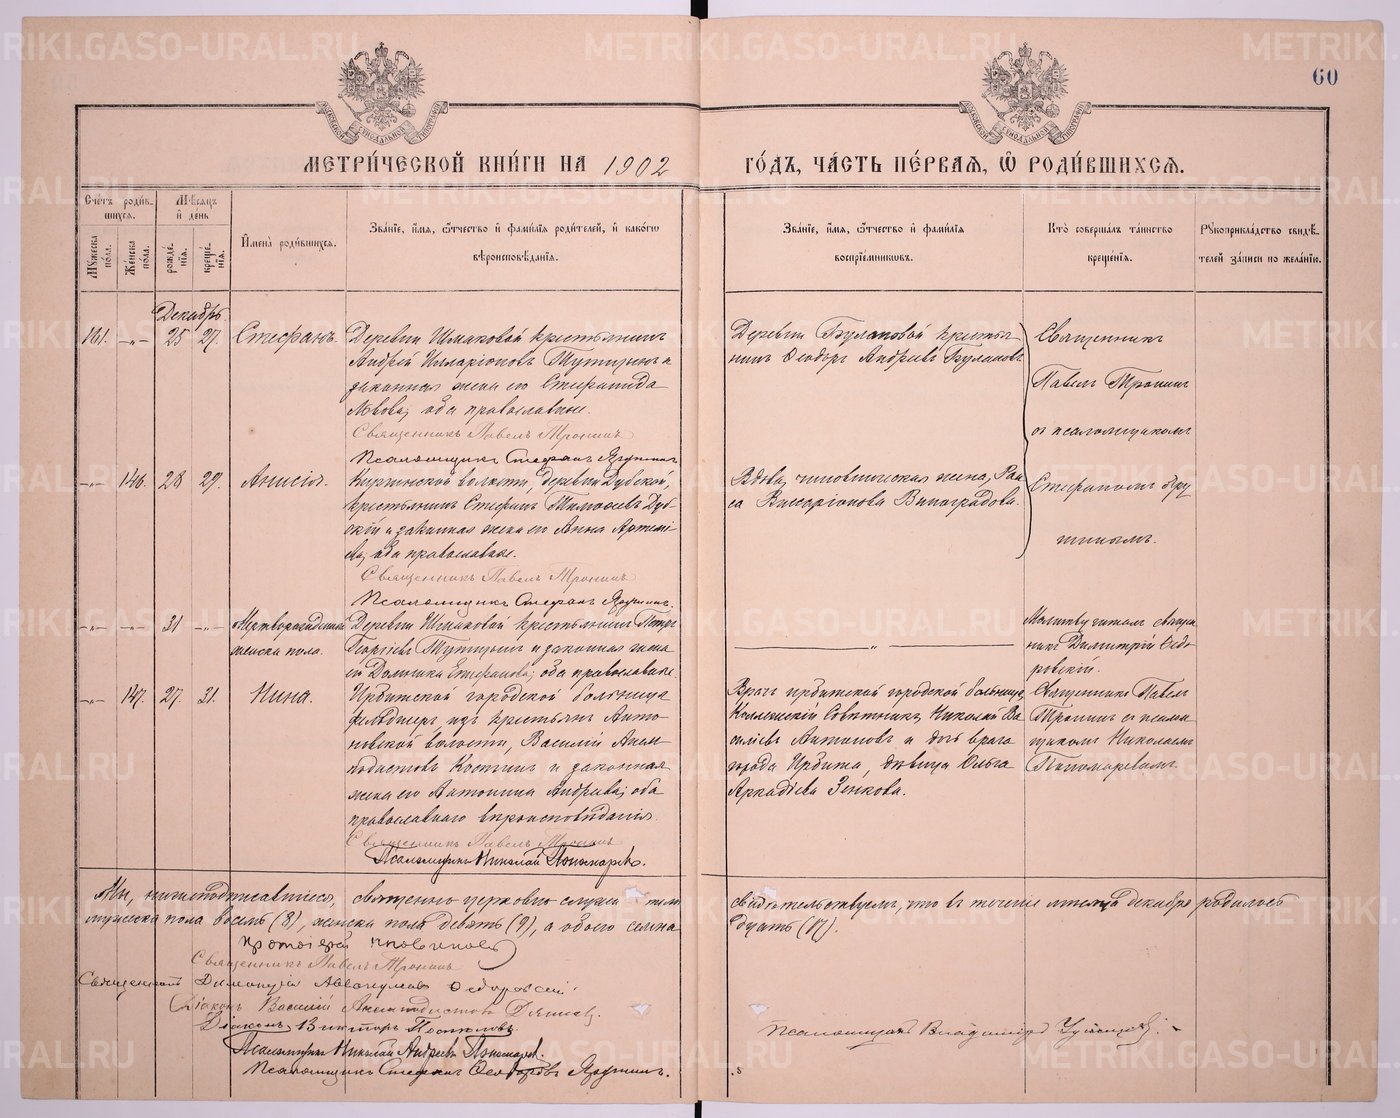 60
МЕТРИ́ЧЕСКОЙ КНИ́ГИ НА 1902 ГО́ДЪ, ЧА́СТЬ ПЕ́РВАЯ, Ѿ РОДИ́ВШИХСЯ.
Сче́тъ роди́вшихся.
Мѣ́сяцъ и́ день
Му́жеска по́ла.
Же́нска по́ла.
рожде́нїѧ.
креще́нїѧ.
И҆мена̀ роди́вшихся.
Зва́нїе, и҆́мя, ѻ҆́тчество и҆ фами́лїя роди́телей, и҆ како́гѡ
вѣроисповѣ́данїя.
Зва́нїе, и҆́мя, ѻ҆́тчество и҆ фами́лїя
воспрїе́мникѡвъ.
Кто̀ соверша́лъ та́инство
креще́нїя.
Рукоприкла́дство свидѣ́телей за́писи по жела́нїю.
Декабрь.
161. -"- 25 27. Стефанъ.
Деревни Шмаковой крестьянинъ
Андрей Илларіоновъ и
законная жена его Стефанида
Львова; оба православные.
Священникъ Павелъ Тронинъ
Псаломщикъ Стефанъ
Деревни Булановой крестьянинъ Ѳеодоръ Андреевъ Булановъ
Священникъ
Павелъ Тронинъ
съ псаломщикомъ
Стефаномъ
-"- 146. 28 29. Анисія.
Киргинской волости, деревни Дубской,
крестьянинъ Стефанъ Тимоѳеевъ Дубскій и законная жена его Анна Артеміева; оба православные.
Священникъ Павелъ Тронинъ
Псаломщикъ Стефанъ
Вдова, чиновническая жена, Раиса Виссаріонова Виноградова.
-"- -"- 31 -"- Мертворожденный
женска пола.
Деревни Шмаковой крестьянинъ Петръ
Георгіевъ и законная жена
его Домника Стефанова; оба православные.
-"-
Молитву читалъ священникъ Димитрій Ѳедоровскій.
-"- 147. 27. 31. Нина.
Ирбитской городской больницы
фельдшеръ изъ крестьянъ Антоновской волости, Василій Анемподистовъ Костинъ и законная
жена его Антонина Андреева; оба
православнаго вѣроисповѣданія.
Священникъ Павелъ Тронинъ
Псаломщикъ Николай Пономаревъ.
Врачъ ирбитской городской больницы,
Коллежскій Совѣтникъ Николай Васильевъ Антоновъ и дочь врача
города Ирбита, дѣвица Ольга
Аркадіева Зенкова.
Священникъ Павелъ
Тронинъ съ псаломщикомъ Николаемъ
Пономаревымъ
Мы, нижеподписавшіеся, священно церковно служители свидѣтельствуемъ, что въ теченіе мѣсяца декабря родилось
мужеска пола восемь (8), женска пола девять (9), а обоего семнадцать (17).
Священникъ Павелъ Тронинъ
Священникъ Димитрій Аввакумовъ Ѳедоровскій.
Діаконъ Василій Анемподистовъ
Діаконъ Викторъ
Псаломщикъ Николай Андреевъ Пономаревъ.
Псаломщикъ Стефанъ Ѳеодоровъ
Псаломщикъ Владиміръ
METRIKI.GASO-URAL.RU